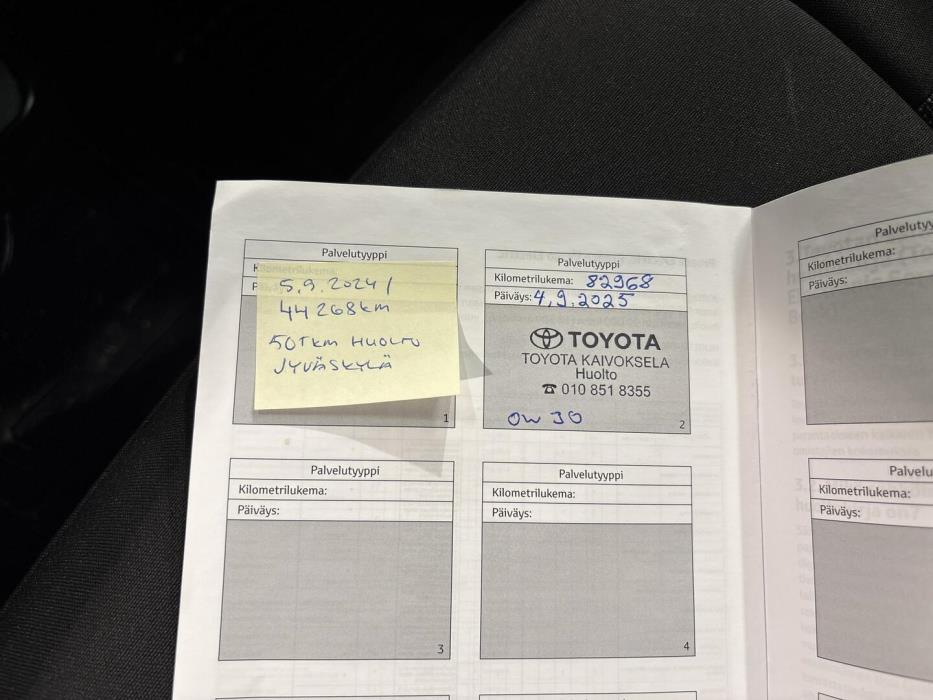 Palvelutyyppi
Kilometrilukema:
5.9.2024/
44 268km
50TKM HUOLTO
JYVÄSKYLÄ
1
Palvelutyyppi
Kilometrilukema: 82968
Päiväys: 4.9.2025
TOYOTA
TOYOTA KAIVOKSELA
Huolto
☎ 010 851 8355
OW 30
2
Palvelutyyppi
Kilometrilukema:
Päiväys:
3
Palvelutyyppi
Kilometrilukema:
Päiväys:
4
Palvelutyy
Kilometrilukema:
Päiväys:
Palvelu
Kilometrilukema:
Päiväys: